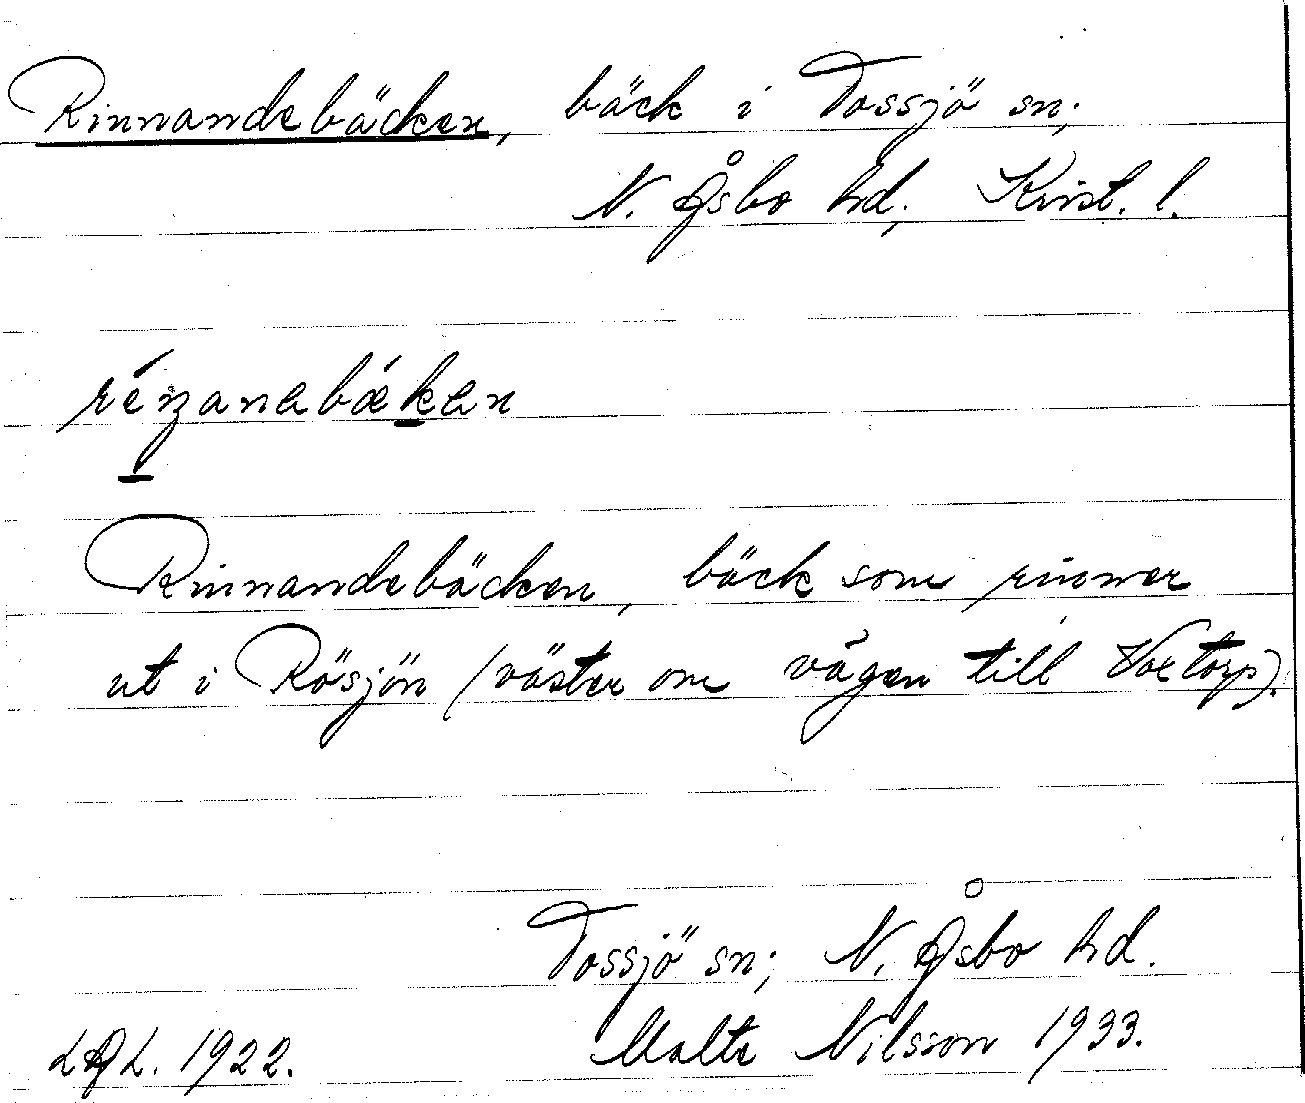 Rinnandebäcken, bäck i Tossjö sn;
N. Åsbo hd, Krist. l.
Rinnandebäcken, bäck som rinner
ut i Rösjön (väster om vägen till Voxtorp).
Tossjö sn; N. Åsbo hd.
1922. Malte Nilsson 1933.